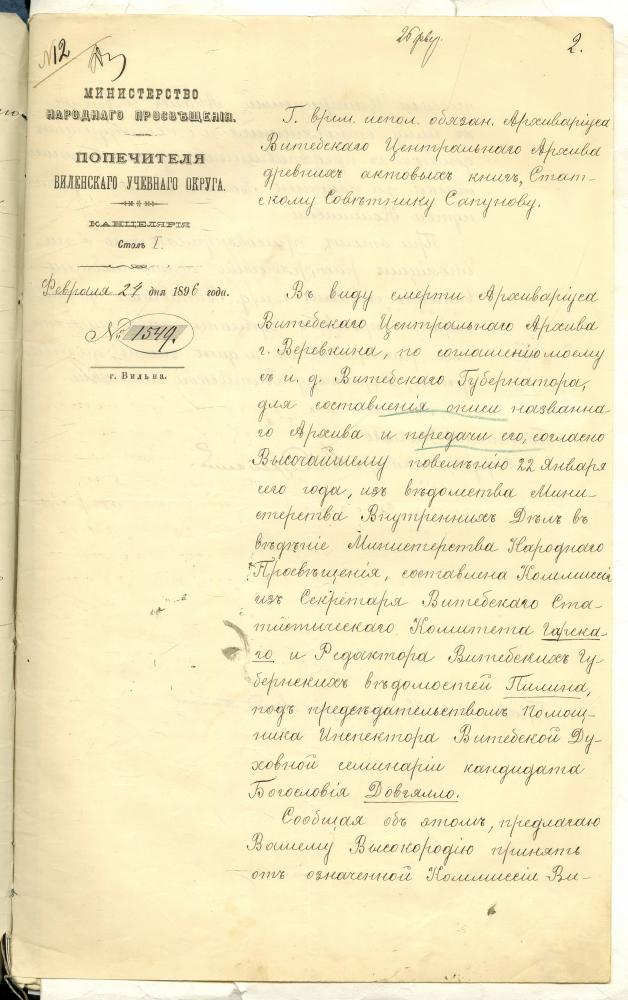 № 12
26 февр.
2.
МИНИСТЕРСТВО
НАРОДНАГО ПРОСВѢЩЕНІЯ.
ПОПЕЧИТЕЛЯ
ВИЛЕНСКАГО УЧЕБНАГО ОКРУГА.
КАНЦЕЛЯРІЯ
Столъ I.
Февраля 24 дня 1896 года.
№ 1549.
г. Вильна.
Г. врем. испол. обязан. Архиваріуса
Витебскаго Центральнаго Архива
древнихъ актовыхъ книгъ, Стат-
скому Совѣтнику Сапунову.
Въ виду смерти Архиваріуса
Витебскаго Центральнаго Архива
г. Веревкина, по соглашенію моему
съ и. д. Витебскаго Губернатора,
для составленія описи названна-
го Архива и передачи его, согласно
Высочайшему повелѣнію 22 Января
сего года, изъ вѣдомства Мини-
стерства Внутреннихъ Дѣлъ въ
вѣдѣніе Министерства Народнаго
Просвѣщенія, составлена Коммиссія
изъ Секретаря Витебскаго Ста-
тистическаго Комитета Гарска-
го и Редактора Витебскихъ Гу-
бернскихъ вѣдомостей Пилина,
подъ предсѣдательствомъ Помощ-
ника Инспектора Витебской Ду-
ховной семинаріи кандидата
Богословія Довгялло.
Сообщая объ этомъ, предлагаю
Вашему Высокородію принять
отъ означенной Коммиссіи Ви-